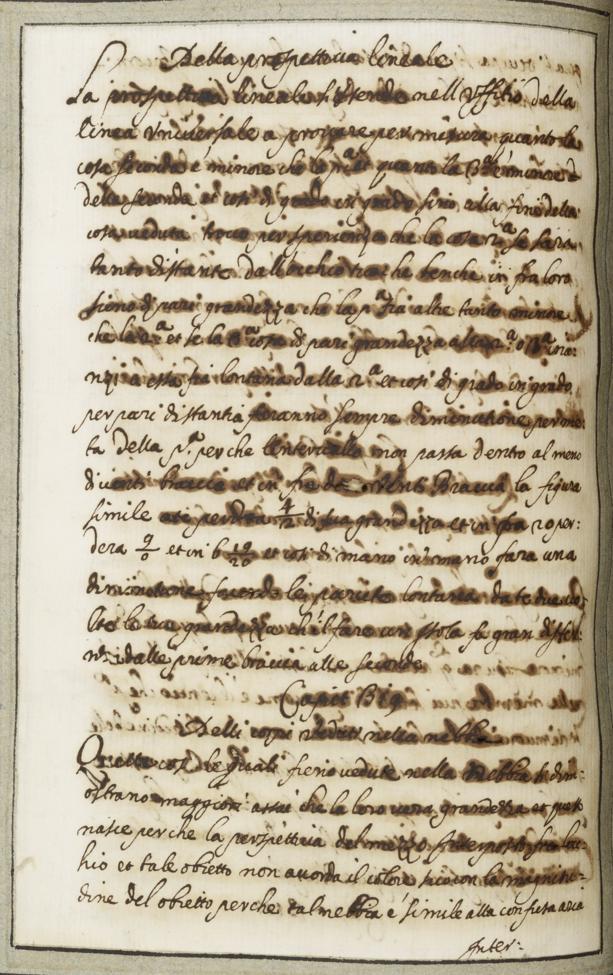 Della prospettiva lineale
La prospettiua lineale s'estende nell Vffitio della
linea vniuersale a prouare per misura quanto la
cosa seconda e minore che la p.ª et quanto la 3ª è minore
della seconda et cosi di grado in grado sino alla fine della
cosa veduta trouo per sperienza che la cosa 2ª se sara
tanto distante dall'occhio che benche in fra loro
siono di pari grandezza che la pª fia altre tanto minore
che la 2ª et se la 3ª cosa di pari grandezza alla 2ª
nzi a essa fia lontana dalla 2ª et cosi di grado in grado
per pari distantia faranno sempre diminutione per me
ta della pª perche l'interuallo non passa dentro al meno
di uenti braccia et in fra venti Braccia la figura
simile perdera 4/2 di sua grandezza et in fra 20 per:
dera 9/0 et in 6 19/20 et cosi di mano in mano fara una
diminutione facendo le pariete lontana da te due uol
te le tue grandezza ch'el fare una stola fa gran diffe
nza dalle prime braccia alle seconde
Capit
Delli corpi veduti nella nebbia
Quelle cose le quali fieno vedute nella Nebbia si dim:
ostrano maggiori assai che la loro vera grandezza et questo
nasce perche la perspettiua del mezzo interposto fra loc:
hio et tale obietto non acorda il colore suo con la magnitu:
dine del obietto perche tal nebbia è simile alla confusa aria
Inter: